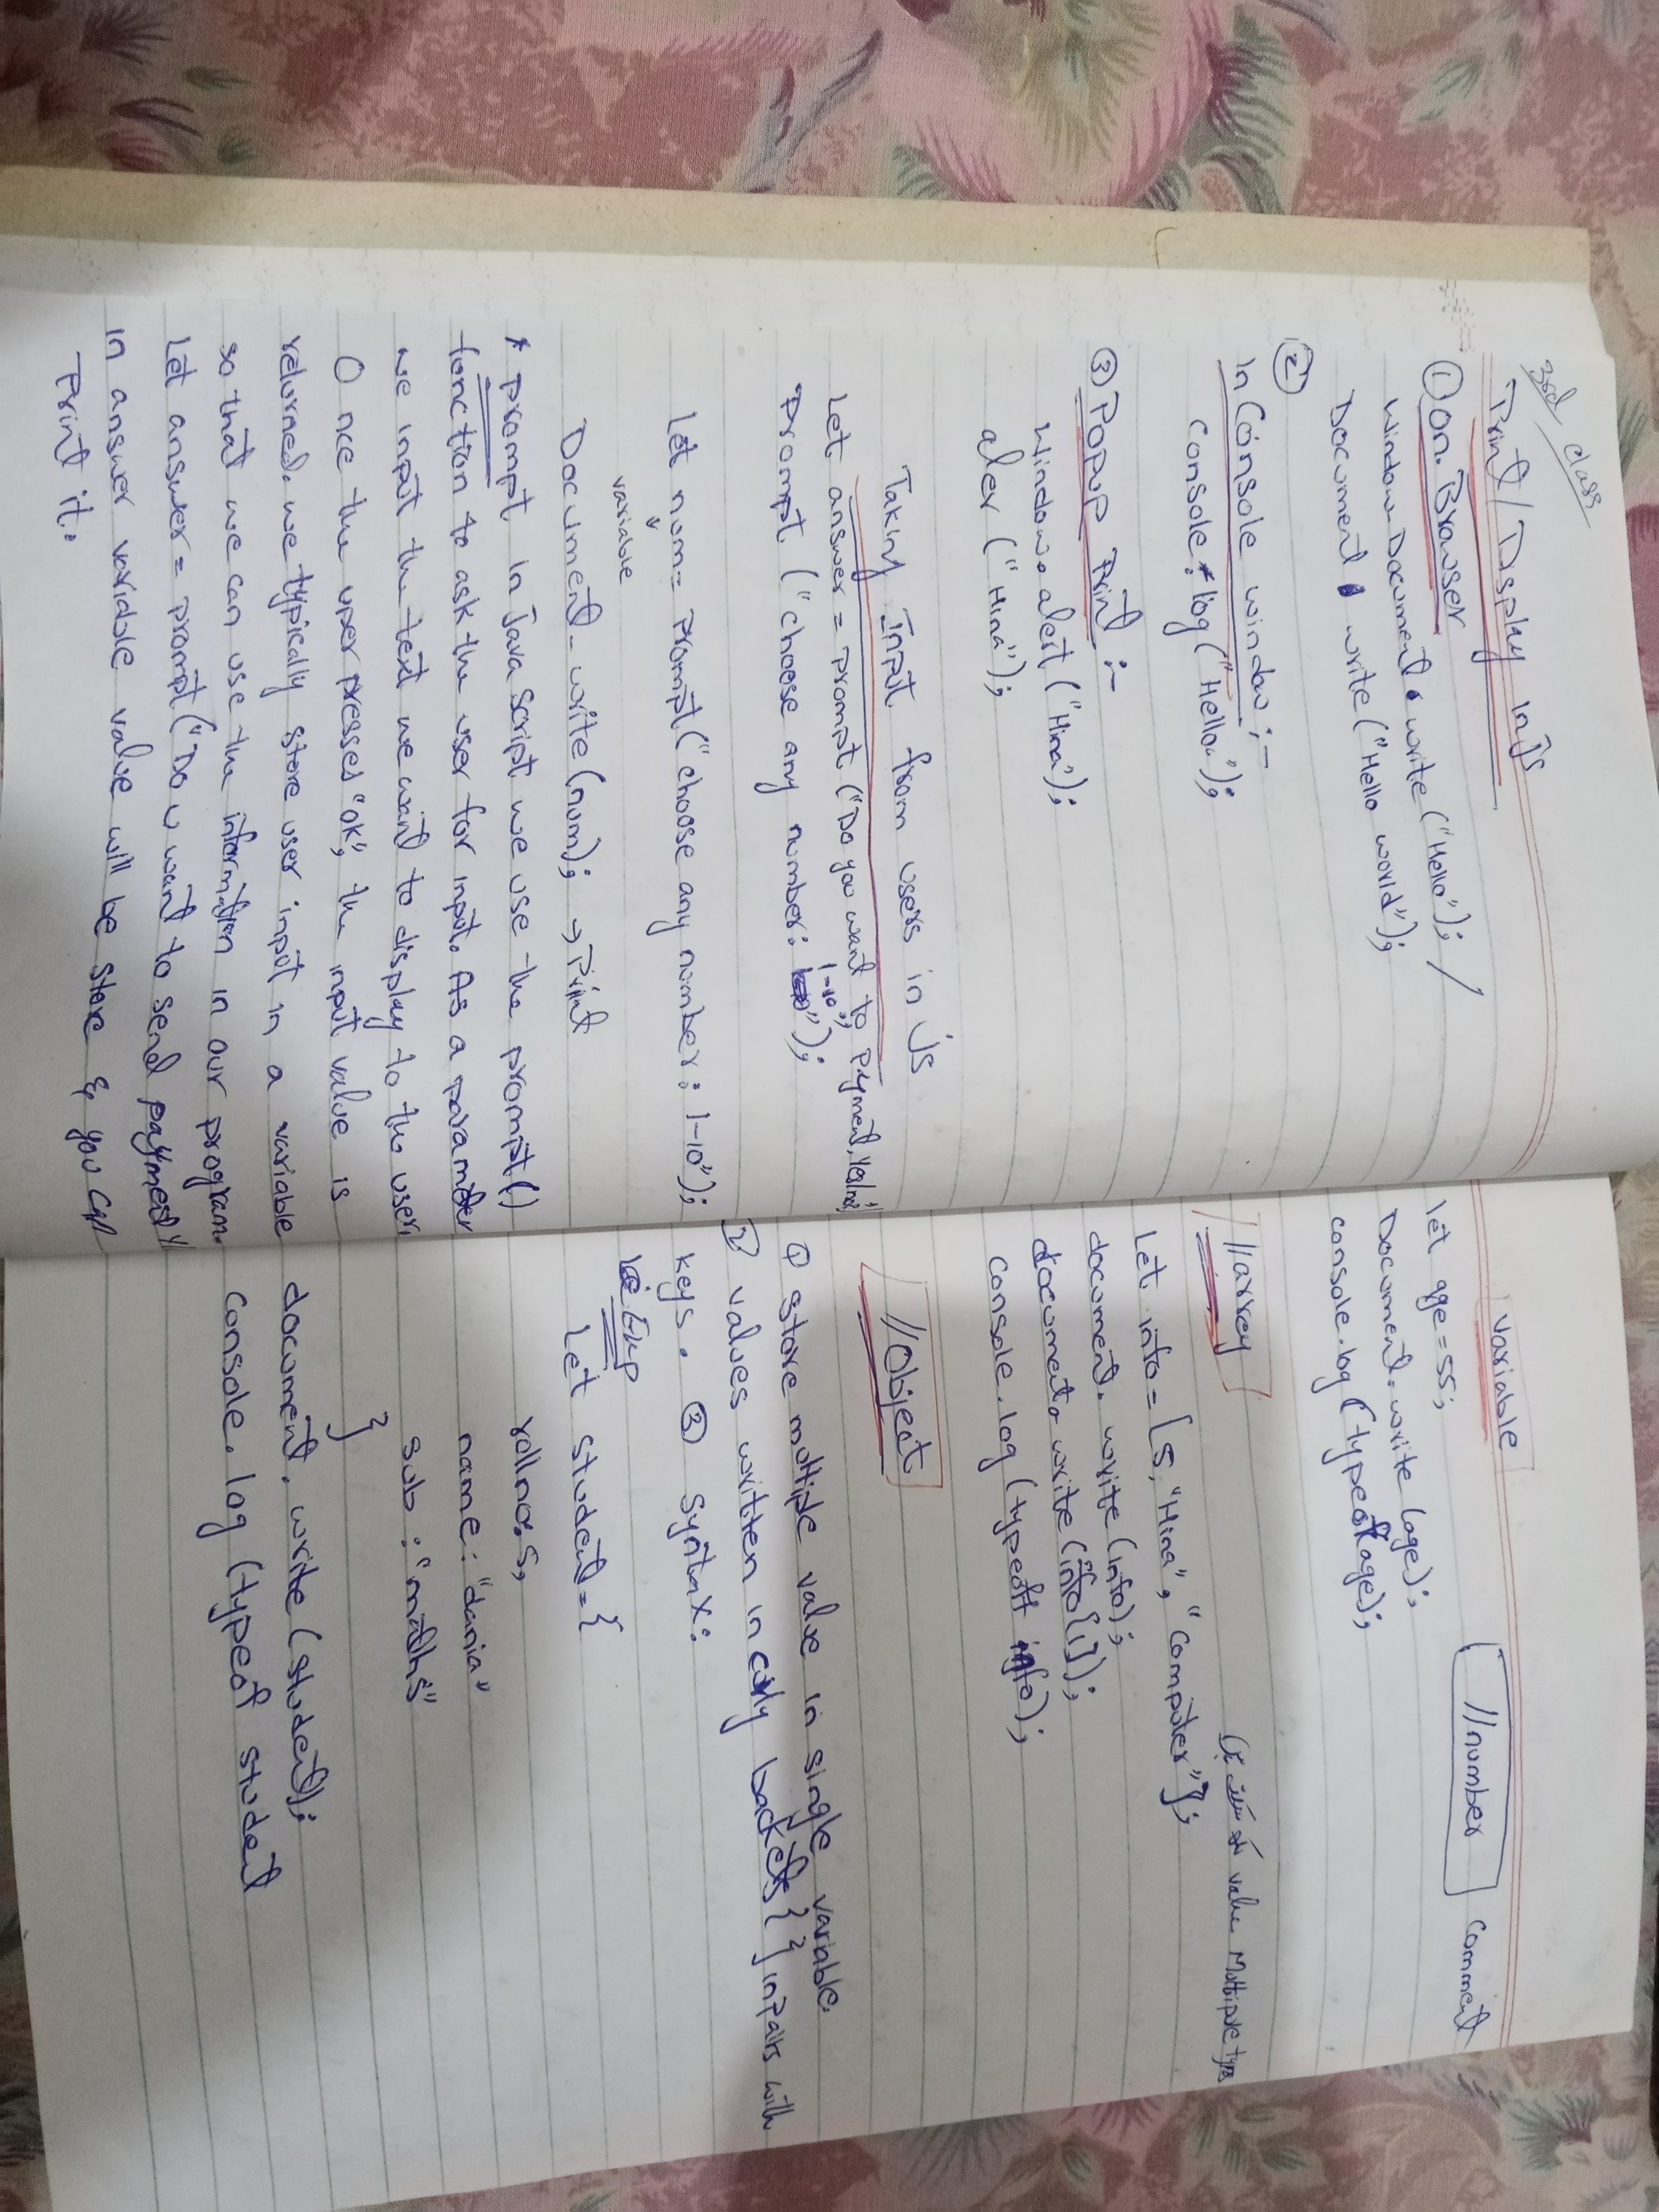 3rd class
Print / Display in js
① on. Browser
Window. Document. write ("Hello"); /
Document. write ("Hello world");
②
in Console window :-
Console. log ("Hello");
③ Popup Print :-
Window. alert ("Hina");
aler ("Hina");
Taking Input from users in js
Let answer = prompt ("Do you want to pyment, yes/no");
Prompt ("choose any number: 1-10");
Let num = prompt ("choose any number: 1-10");
variable
Document_write (num); → Print
* prompt in Java Script we use the prompt()
function to ask the user for input. As a parameter
we input the text we want to display to the user.
Once the uper presses "ok", the input value is
returned. we typically store user input in a variable
so that we can use the information in our program.
Let answer = prompt ("Do u want to send payment y
in answer variable value will be store & you can
Print it.
variable
//number comment
let age = 55;
Document. write (age);
console. log (typeof age);
//arrey
value Multiple types
Let info = [5, "Hina", "Computer"];
document. write (info);
document. write (info[1]);
console. log (typeoff info);
//Object
① store multiple value in single variable.
② values writiten in curly backets { } in pairs with
keys. ③ syntax:
Exp
Let student = {
rollno: 5,
name: "dania"
sub: "maths"
}
document. write (student);
console. log (typeof student